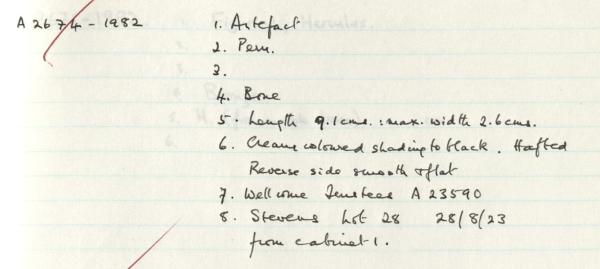 A 2674 - 1982 1. Artefact
2. Peru.
3.
4. Bone
5. Length 9.1cms. : max. width 2.6cms.
6. Cream coloured shading to black. Hafted
Reverse side smooth & flat
7. Wellcome Trustees A 23590
8. Stevens Lot 28 28/8/23
from cabinet 1.